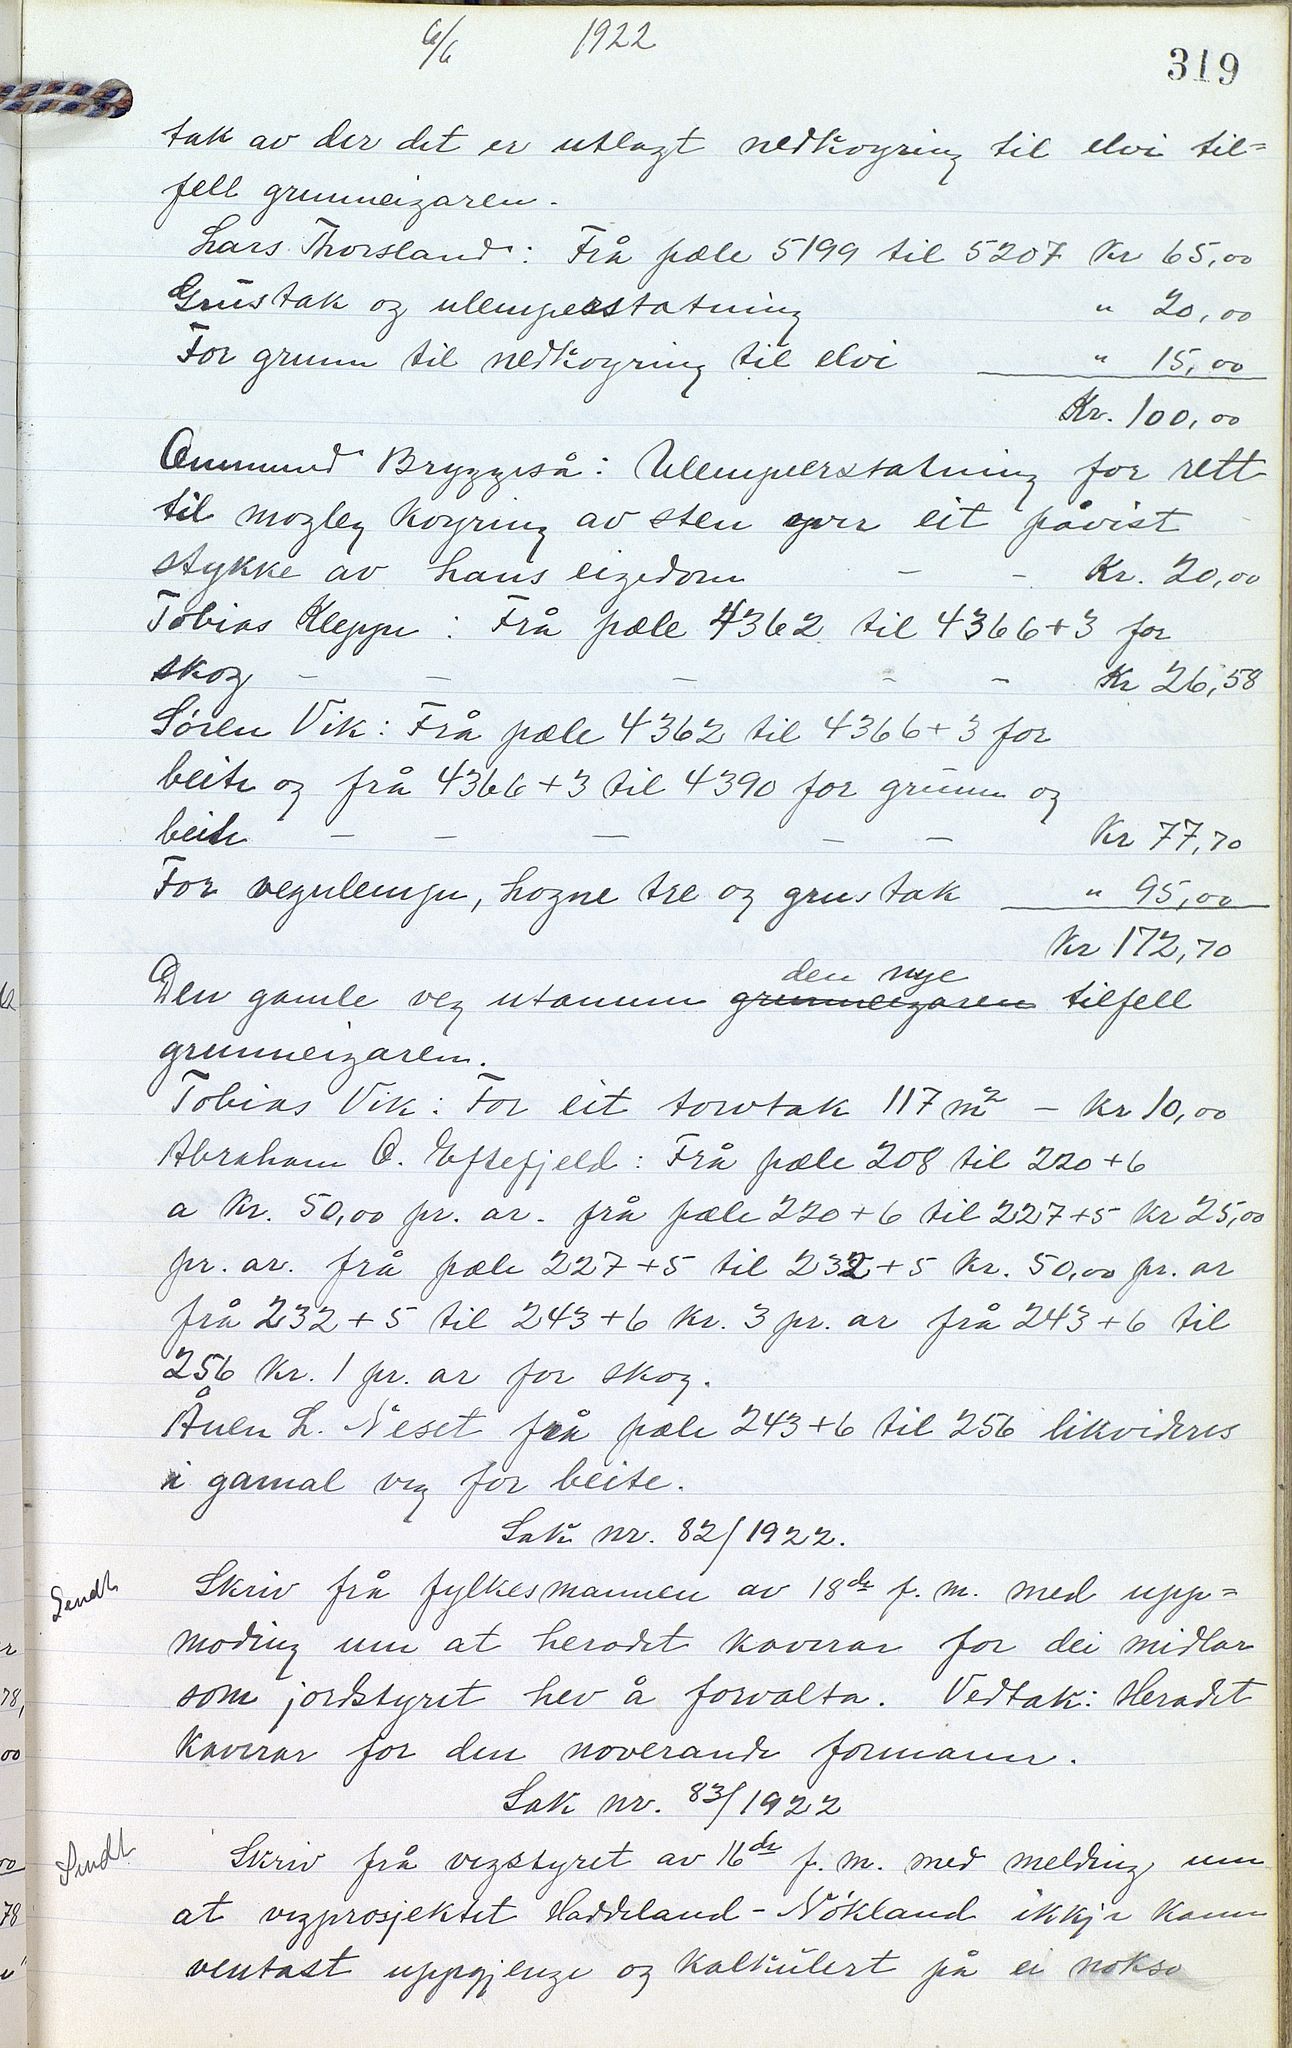 6/6 1922
319
tak av der det er utlagt nedkoyring til elvi til=
fell grunneigaren.
Lars Thorsland: Frå pæle 5199 til 5207 Kr 65,00
Grustak og ulemperstatning " 20,00
For grunn til nedkoyring til elvi " 15,00
Kr. 100,00
Aanund Bryggeså: Ulemperstatning for rett
til mogleg koyring av sten yver eit påvist
stykke av hans eigedom - - Kr. 20,00
Tobias Kleppe: Frå pæle 4362 til 4366+3 for
skog - - - - - Kr 26,58
Søren Vik: Frå pæle 4362 til 4366+3 for
beite og frå 4366+3 til 4390 for grunn og
beite - - - - - Kr 77,70
For vegulempe, hogne tre og grustak " 95,00
Kr 172,70
den nye
Den gamle veg utanum grunneigaren tilfell
grunneigaren.
Tobias Vik: For eit torvtak 117 m2 - Kr 10,00
Abraham O. Eftefjeld: Frå pæle 208 til 220+6
a Kr. 50,00 pr. ar. frå pæle 220+6 til 227+5 Kr 25,00
pr. ar. frå pæle 227+5 til 232+5 Kr. 50,00 pr. ar
frå 232+5 til 243+6 Kr. 3 pr. ar frå 243+6 til
256 Kr. 1 pr. ar for skog.
Ånen L. Neset frå pæle 243+6 til 256 likvideres
i gamal veg for beite.
Sak nr. 82/1922.
Sendt
Skriv frå fylkesmannen av 18de f. m. med upp=
moding um at heradet kaverar for dei midlar
som jordstyret hev å forvalta. Vedtak: Heradet
kaverar for den noverande formann.
Sak nr. 83/1922
Sendt
Skriv frå vegstyret av 16de f. m. med melding um
at vegprosjektet Haddeland-Nøkland ikkje kann
ventast uppgjenge og kalkulert på ei nokso